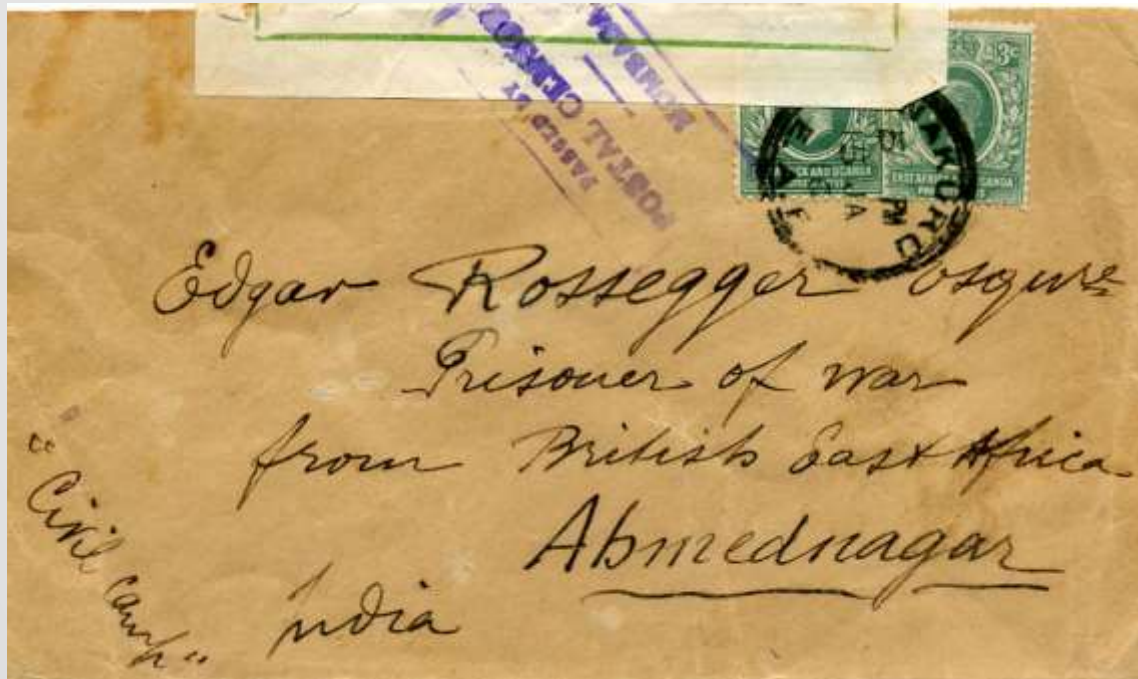 PASSED BY
POSTAL CENSOR
MOMBASA
3c
EAST AFRICA AND UGANDA
NAKURU
PM
JA
Edgar Rossegger Esqure
Prisoner of war
from British East Africa
Ahmednagar
India
"Civil Camp"